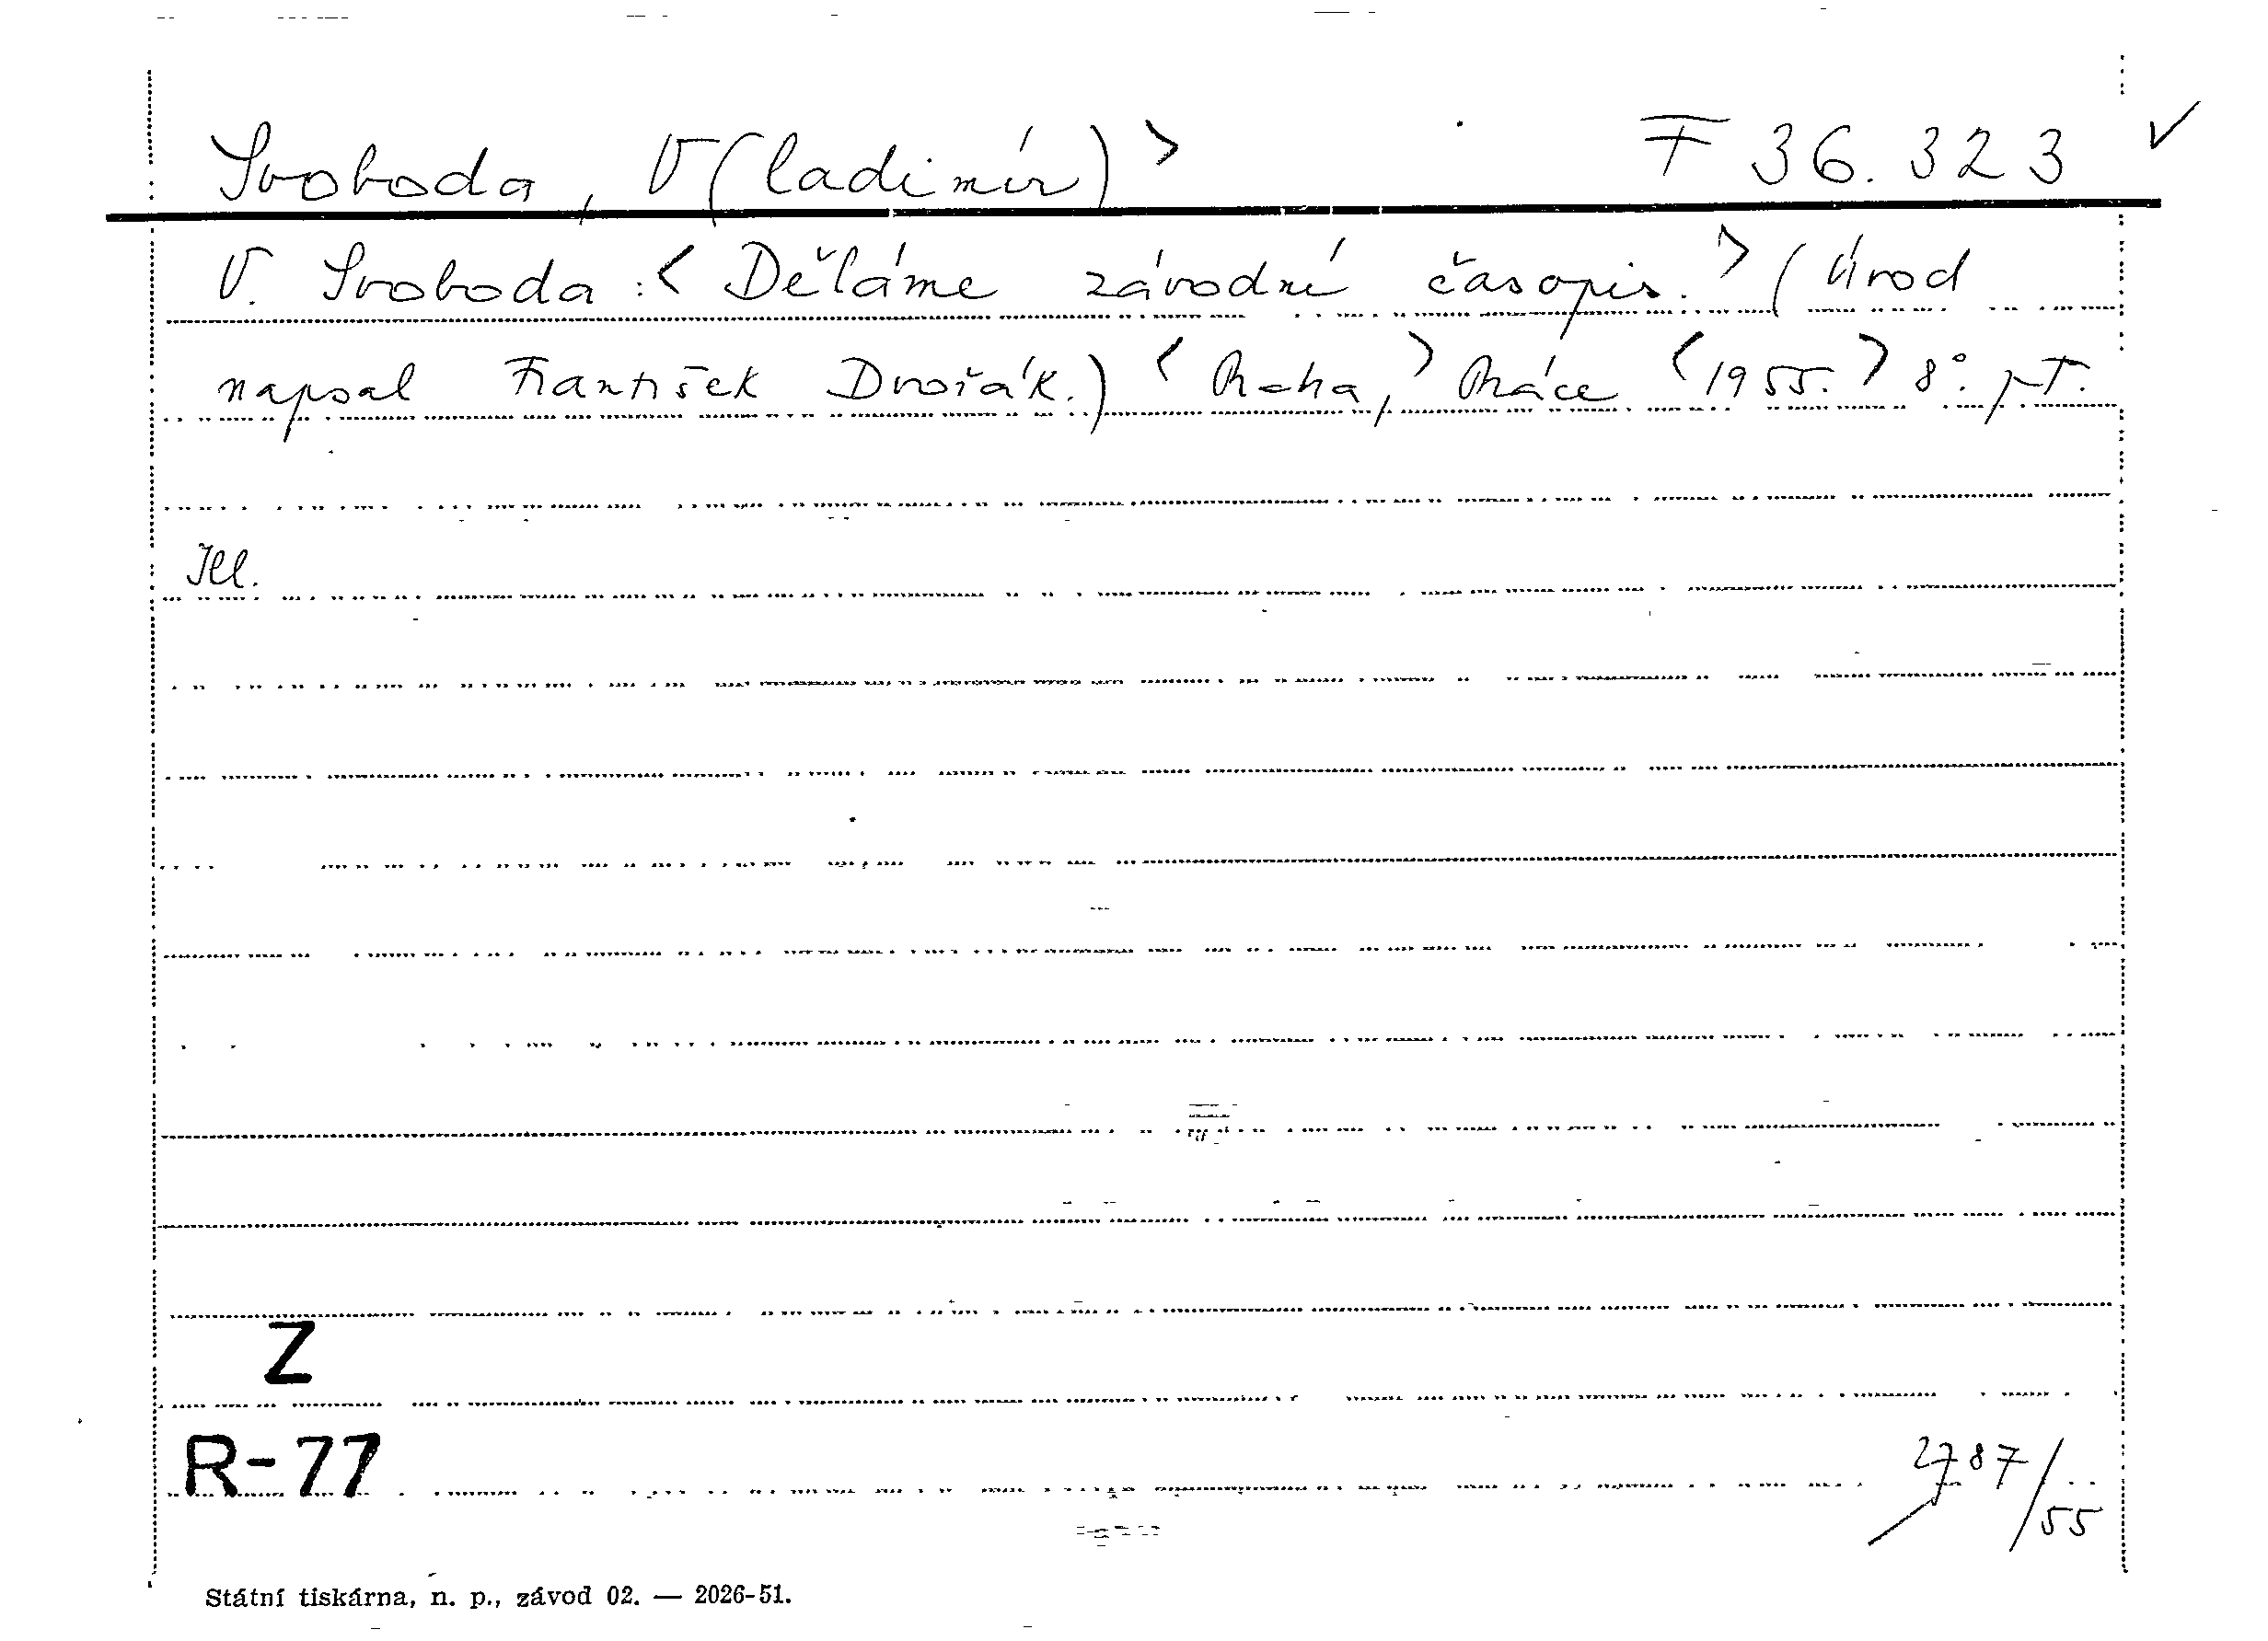 Svoboda, V(ladimír)> F 36.323 ✓
V. Svoboda:< Děláme závodní časopis.> (Úvod
napsal František Dvořák.) <Praha,> Práce <1955.> 8°.
Ill.
Z
R-77
2787/55
Státní tiskárna, n. p., závod 02. — 2026-51.